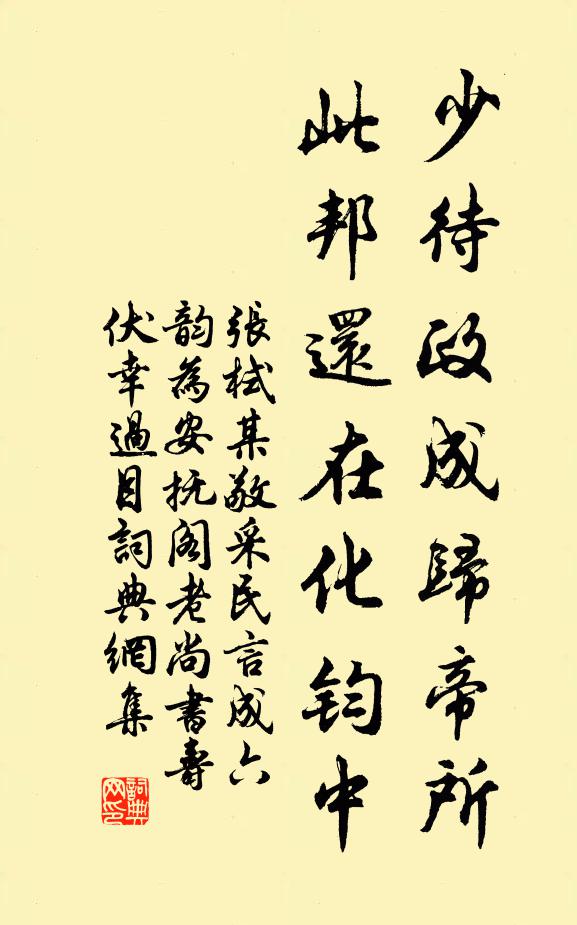 少待政成歸帝所
此邦還在化鈞中
張栻某敬采民言成六
韵為安抚阁老尚書壽
伏幸過目詞典網集
詞典网印